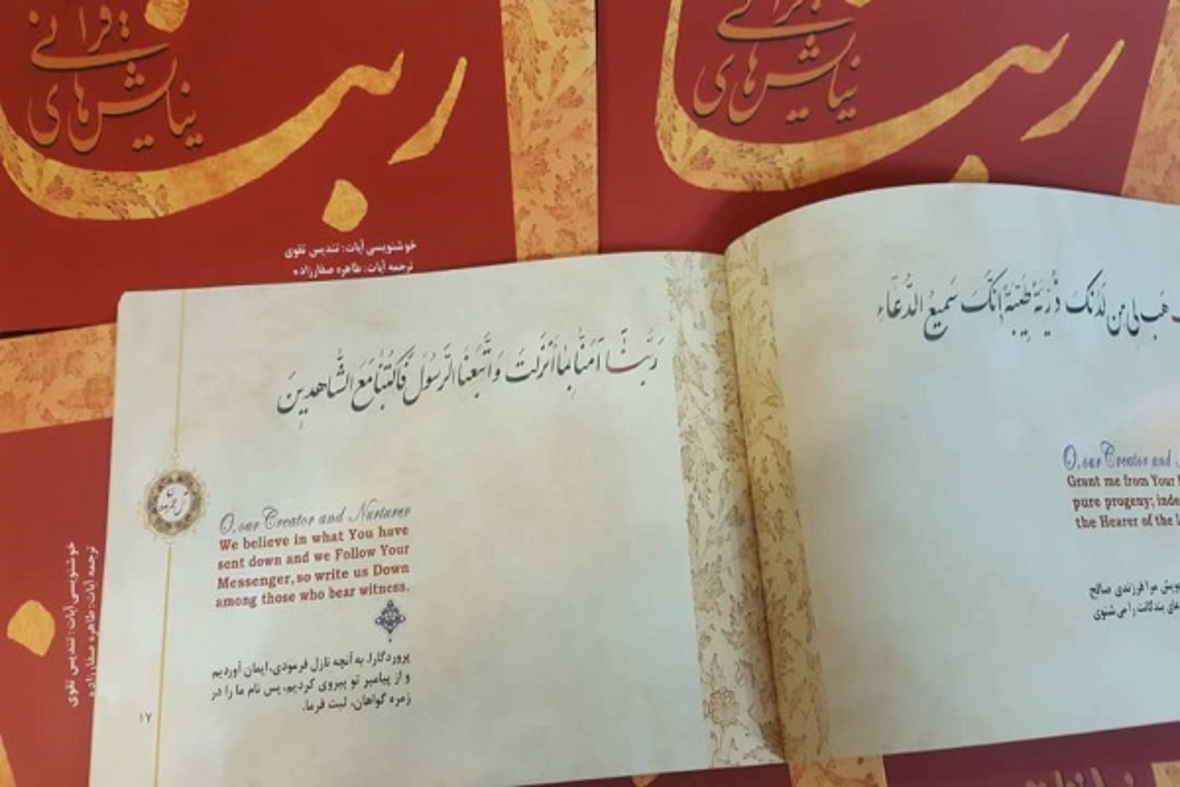 قرآنی
نیایش‌های
ربنا
خوشنویسی آیات: تندیس تقوی
ترجمه آیات: طاهره صفارزاده
قرآنی
نیایش‌های
ربنا
هَب لِی مِن لَدُنکَ ذُرِّیَّةً طَیِّبَةً اِنَّکَ سَمیعُ الدُّعَاءِ
O, our Creator and
Grant me from Your
pure progeny; inde
the Hearer of the
مرا فرزندی صالح
بندگانت را می‌شنوی
رَبَّنَا آمَنَّا بِمَا أَنزَلتَ وَاتَّبَعنَا الرَّسُولَ فَاکتُبنَا مَعَ الشَّاهِدِینَ
آل عمران
O, our Creator and Nurturer
We believe in what You have
sent down and we Follow Your
Messenger, so write us Down
among those who bear witness.
پروردگارا، به آنچه نازل فرمودی، ایمان آوردیم
و از پیامبر تو پیروی کردیم، پس نام ما را در
زمره گواهان، ثبت فرما.
۱۷
خوشنویسی آیات: تندیس تقوی
ترجمه آیات: طاهره صفارزاده